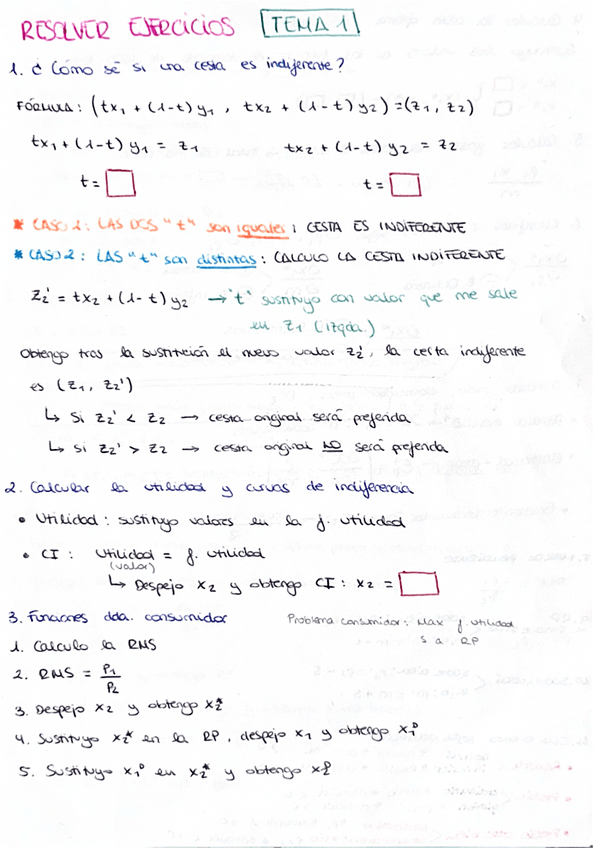 RESOLVER EJERCICIOS TEMA 1
1. ¿Cómo sé si una cesta es indiferente?
FÓRMULA: (tx₁ + (1-t) y₁ , tx₂ + (1-t) y₂) = (z₁, z₂)
tx₁ + (1-t) y₁ = z₁ tx₂ + (1-t) y₂ = z₂
t = t =
* CASO 1: LAS DOS "t" son iguales: CESTA ES INDIFERENTE
* CASO 2: LAS "t" son distintas: CALCULO LA CESTA INDIFERENTE
z₂' = tx₂ + (1-t) y₂ → "t" sustituyo con valor que me sale
en z₁ (izqda.)
Obtengo tras la sustitución el nuevo valor z₂', la cesta indiferente
es (z₁, z₂')
↳ Si z₂' < z₂ → cesta original será preferida
↳ Si z₂' > z₂ → cesta original NO será preferida
2. Calcular la utilidad y curvas de indiferencia
• Utilidad: sustituyo valores en la f. utilidad
• CI: Utilidad = f. utilidad
(valor)
↳ Despejo x₂ y obtengo CI: x₂ =
3. Funciones dda. consumidor Problema consumidor: Max f. utilidad
s.a. RP
1. Calculo la RMS
2. RMS = P₁/P₂
3. Despejo x₂ y obtengo x₂*
4. Sustituyo x₂* en la RP, despejo x₁ y obtengo x₁ᴰ
5. Sustituyo x₁ᴰ en x₂* y obtengo x₂ᴰ